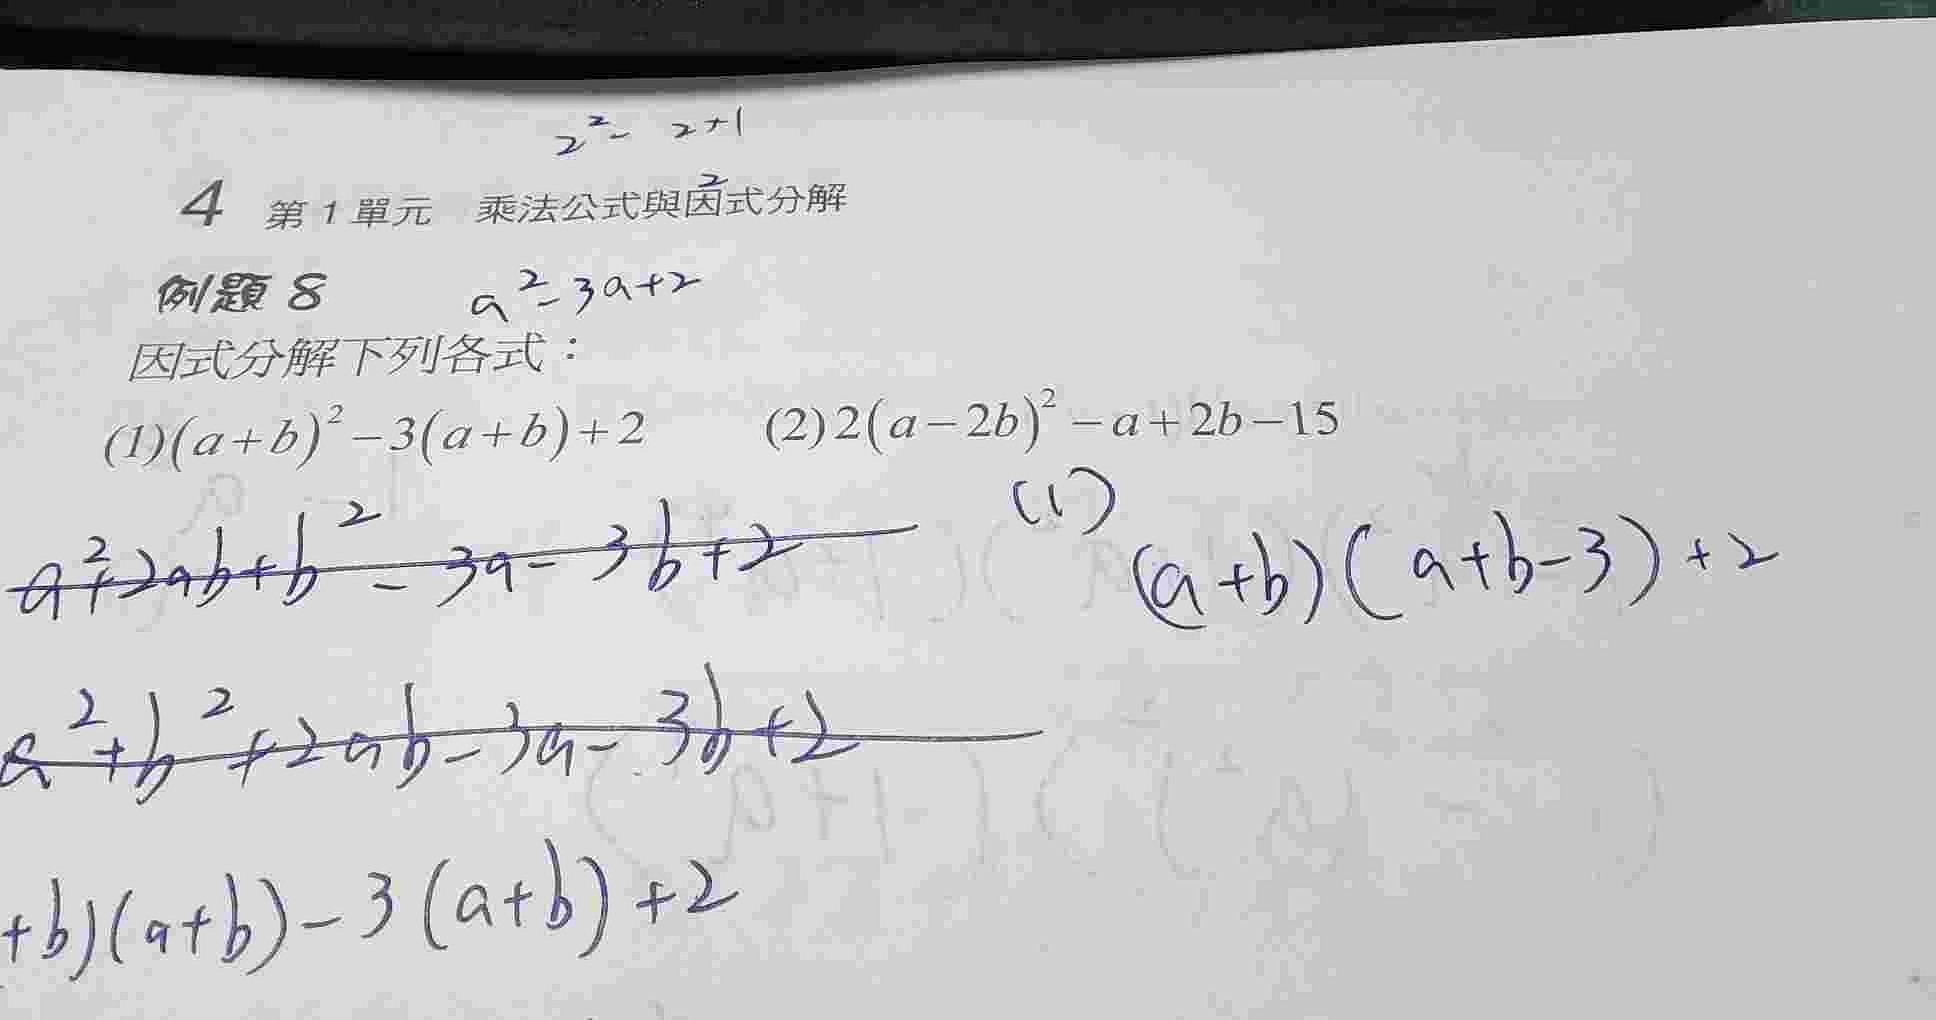 2² - 2+1
4 第1單元 乘法公式與因式分解
2
例題 8 a²-3a+2
因式分解下列各式：
(1)(a+b)²-3(a+b)+2 (2)2(a-2b)²-a+2b-15
(1)
a²+2ab+b²-3a-3b+2 (a+b)(a+b-3)+2
a²+b²+2ab-3a-3b+2
+b)(a+b)-3(a+b)+2